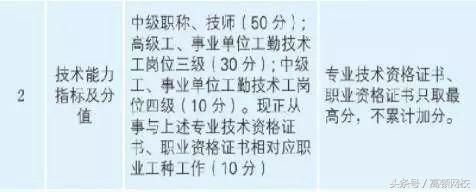 2
技术能力
指标及分
值
中级职称、技师（50 分）；
高级工、事业单位工勤技术
工岗位三级（30 分）；中级
工、事业单位工勤技术工岗
位四级（10 分）。现正从
事与上述专业技术资格证
书、职业资格证书相对应职
业工种工作（10 分）
专业技术资格证书、
职业资格证书只取最
高分，不累计加分。
头条号 / 高顿网校